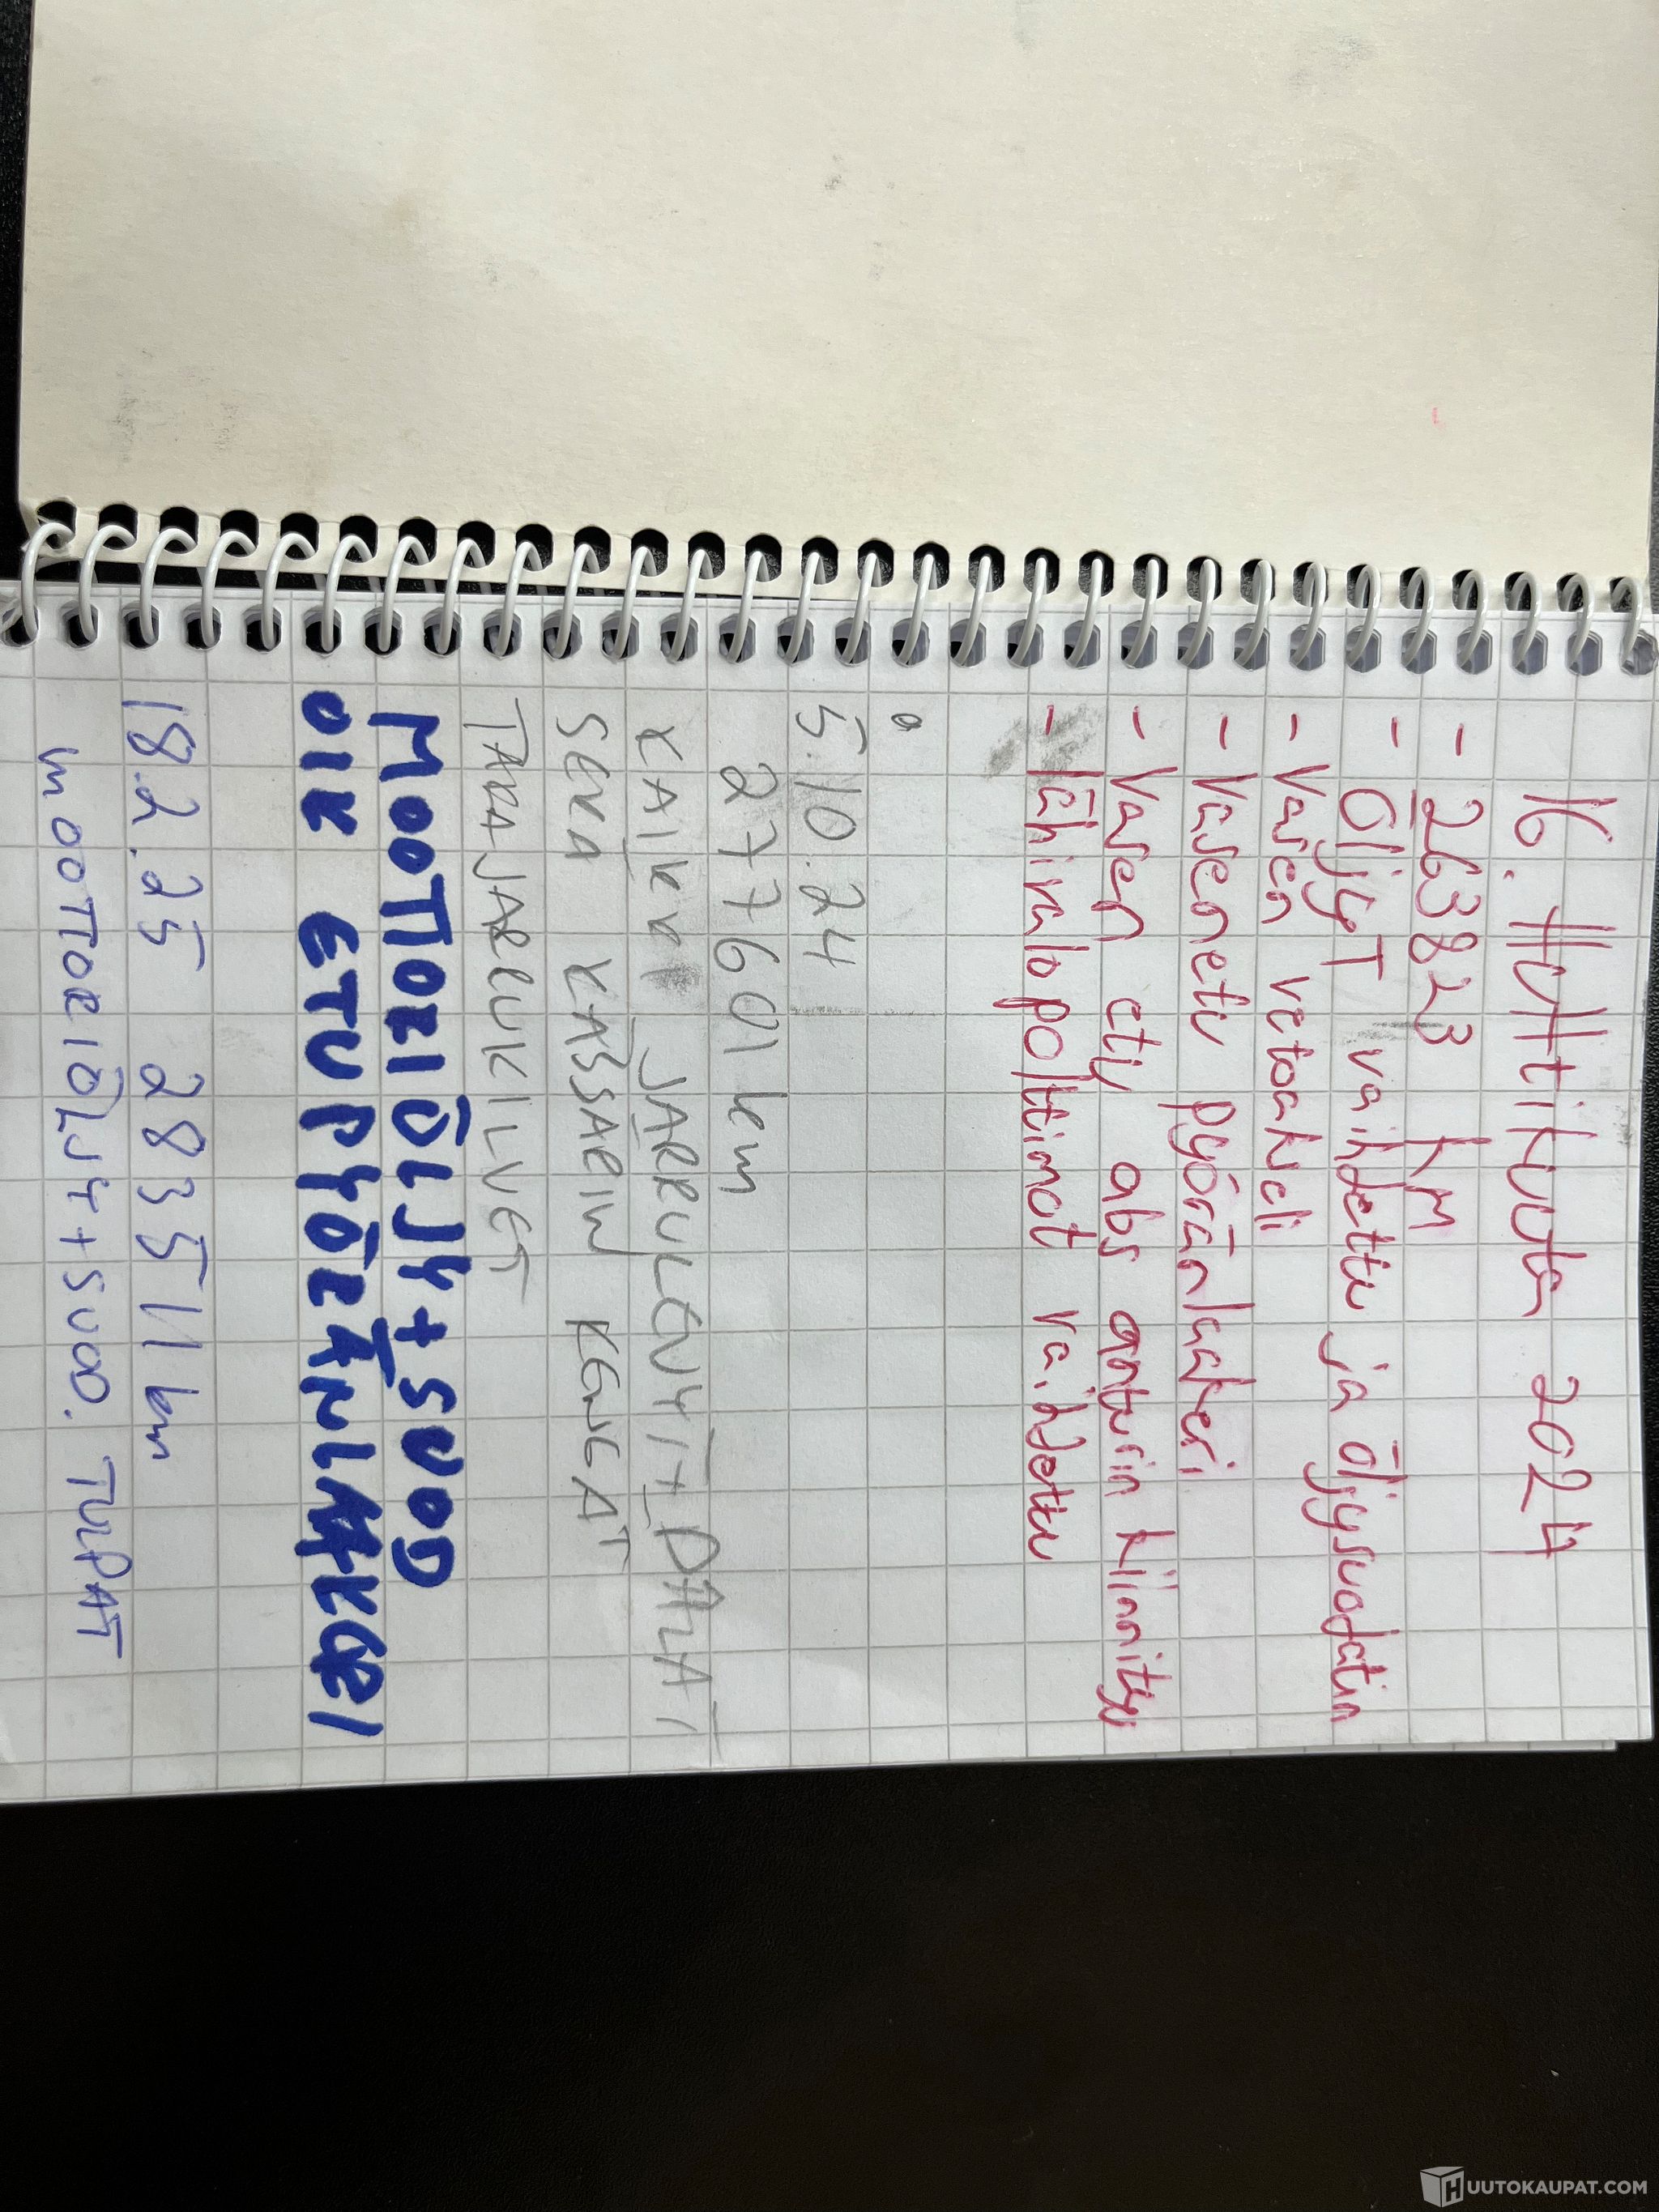 16. Huhtikuuta 2024
- 263823 KM
- ÖljyT vaihdettu ja öljysuodatin
- Vasen vetoakseli
- Vasen etu pyöränlaakeri
- Vasen ety abs anturin kiinnitys
- lähivalopolttimot vaihdettu
5.10.24
277601 km
KAIKKI JARRULEVYT+PALAT
SEKÄ KÄSSÄRIN KENGÄT
TAKAJARRUKILVET
MOOTTORIÖLJY+SUOD
OIK ETUPYÖRÄNLAAKERI
18.2.25 283511 km
MOOTTORIÖLJY+SUOD. TULPAT
HUUTOKAUPAT.COM